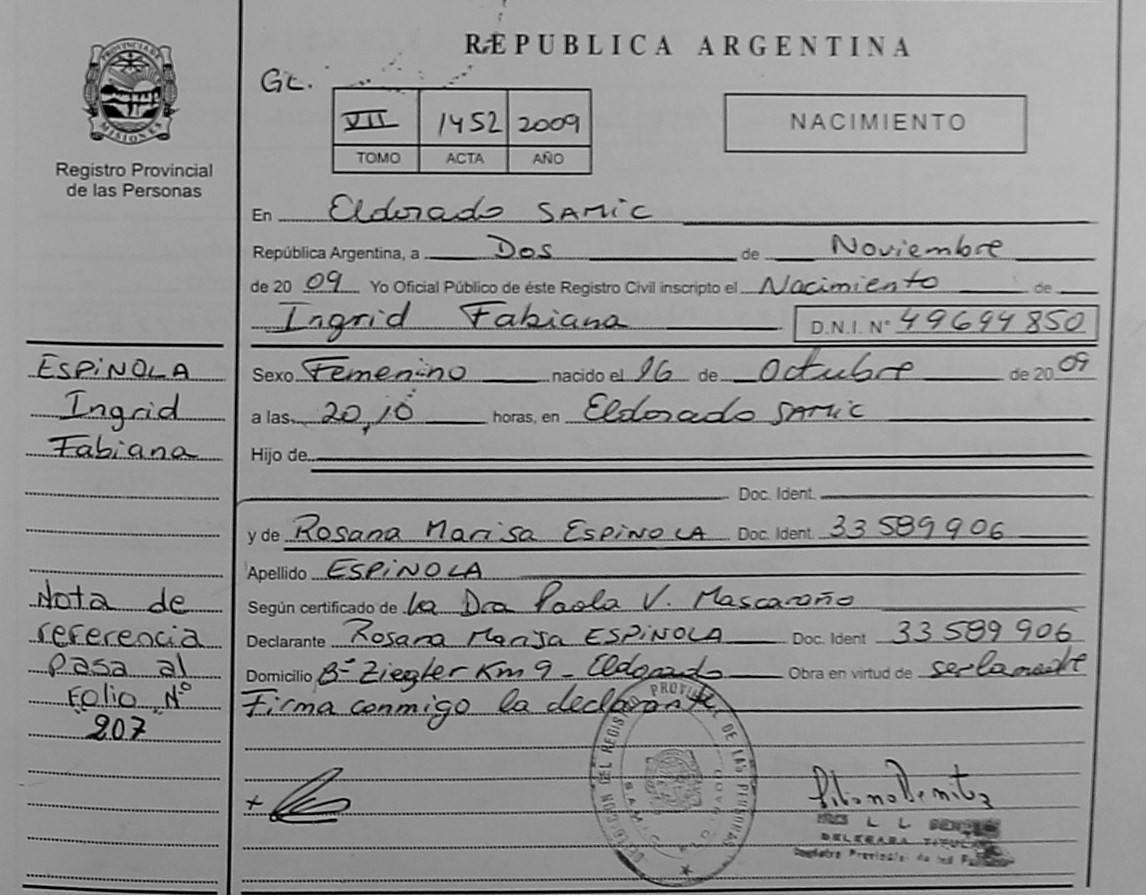 PROVINCIA DE
MISIONES
Registro Provincial
de las Personas
REPUBLICA ARGENTINA
GL.
VII 1452 2009
TOMO ACTA AÑO
NACIMIENTO
En Eldorado SAMIC
República Argentina, a Dos de Noviembre
de 20 09 Yo Oficial Público de éste Registro Civil inscripto el Nacimiento de
Ingrid Fabiana D.N.I. N° 49694850
Sexo Femenino nacido el 16 de Octubre de 20 09
a las 20,10 horas, en Eldorado SAMIC
Hijo de
Doc. Ident.
y de Rosana Marisa ESPINOLA Doc. Ident. 33 589 906
Apellido ESPINOLA
Según certificado de La Dra Paola V. Mascaroño
Declarante Rosana Marisa ESPINOLA Doc. Ident 33 589 906
Domicilio B° Ziegler Km 9 - Eldorado Obra en virtud de ser la madre
Firma conmigo la declarante
ESPINOLA
Ingrid
Fabiana
Nota de
referencia
pasa al
Folio N°
"207"
DELEGADA TITULAR
Registro Provincial de las Personas